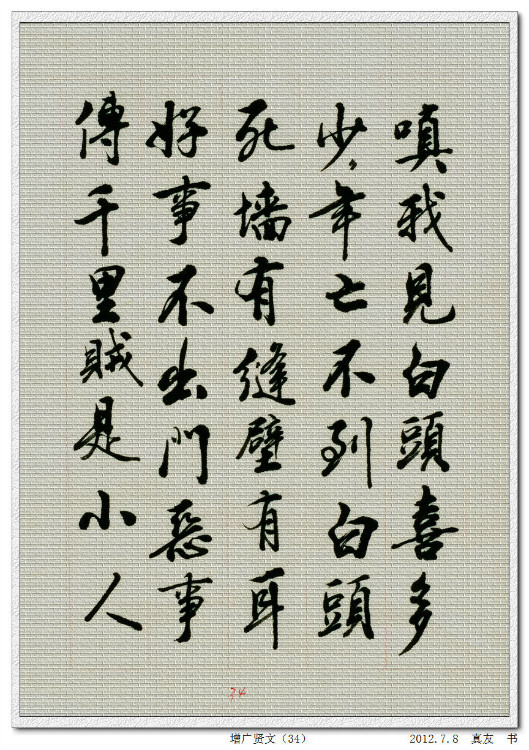 嗔我見白頭喜多
少年亡不到白頭
死墙有縫壁有耳
好事不出門惡事
傳千里賊是小人
34
增广贤文（34）
2012.7.8 真友 书